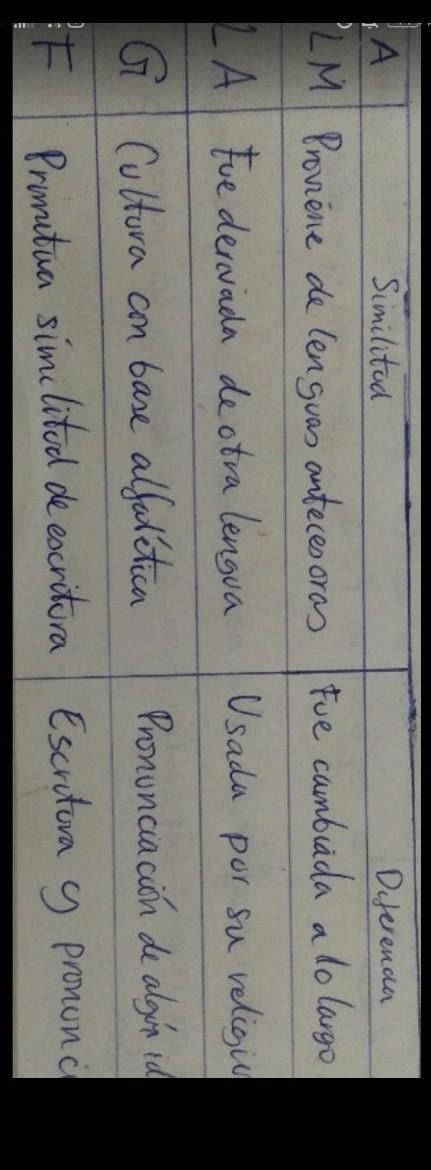 A Similitud Diferencia
LM Proviene de lenguas antecesoras Fue cambiada a lo largo
LA Fue derivada de otra lengua Usada por su
G Cultura con base alfabética Pronunciación de algún
F Primitiva similitud de escritura Escritura y